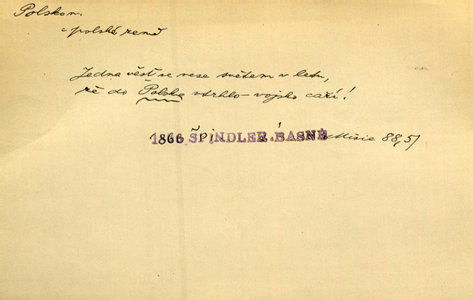 Polsko n.
polské země
Jedna věst se nese světem v letu,
že do Polska vtrhlo vojsko carí!
1866 ŠPINDLER, BÁSNĚ Misie 88,51